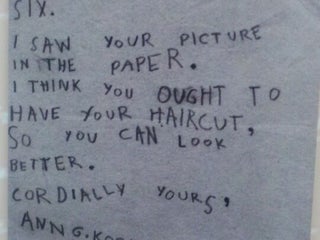 SIX.
I SAW YOUR PICTURE
IN THE PAPER.
I THINK YOU OUGHT TO
HAVE YOUR HAIRCUT,
SO YOU CAN LOOK
BETTER.
CORDIALLY YOURS,
ANN G.